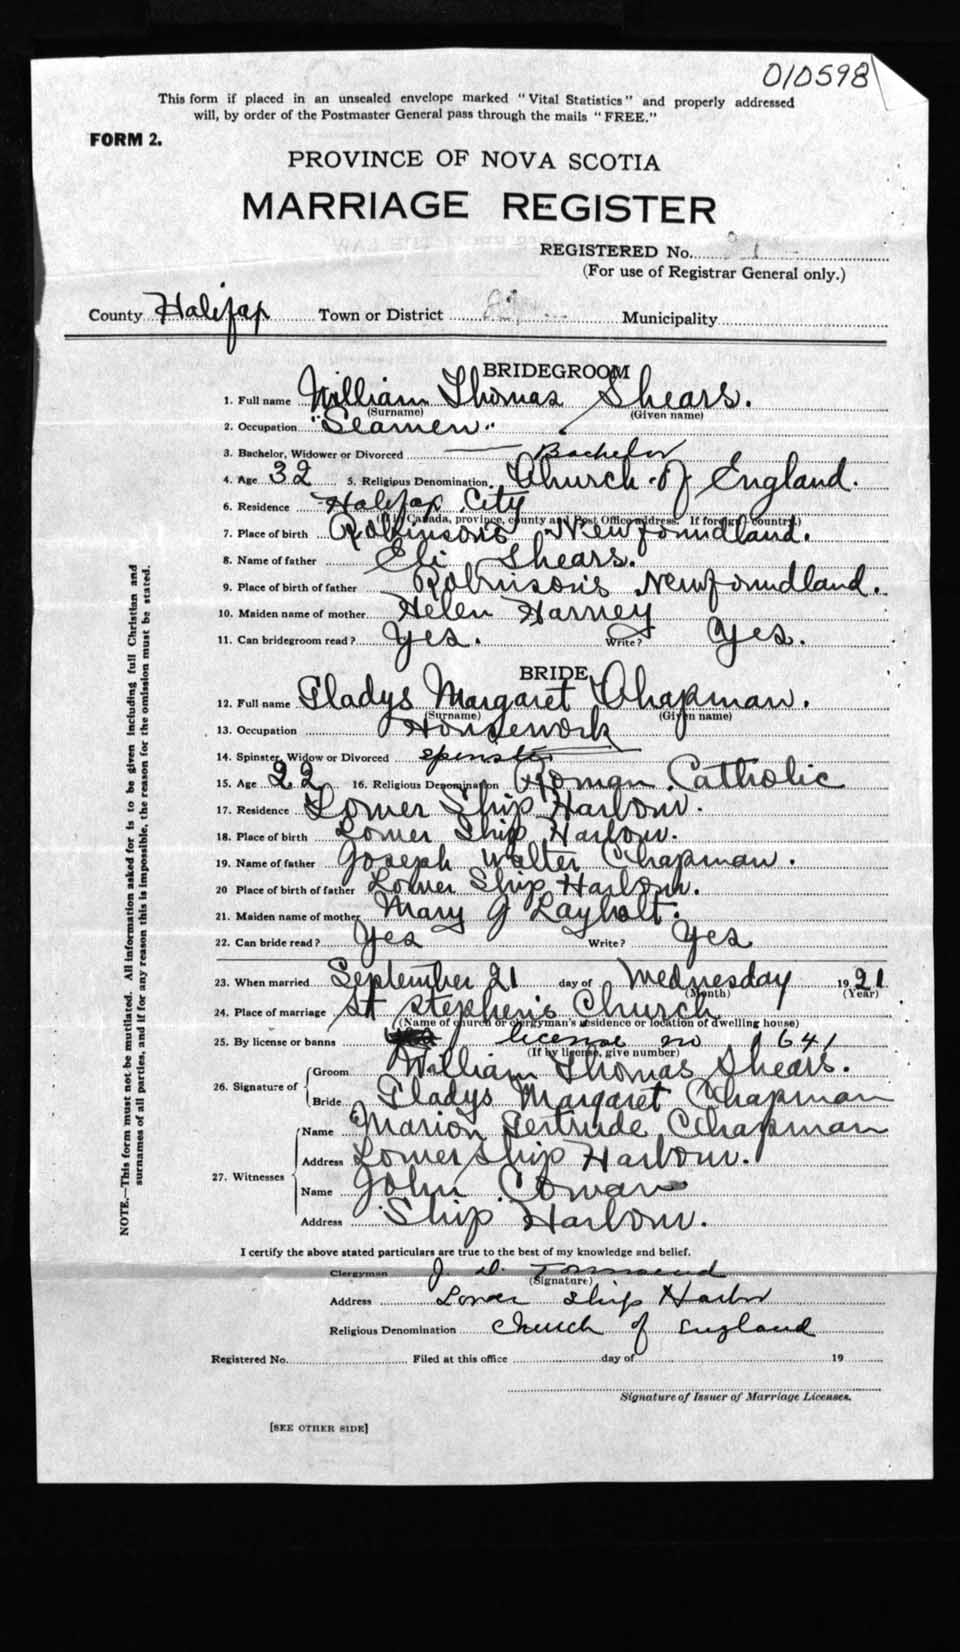 010598
This form if placed in an unsealed envelope marked "Vital Statistics" and properly addressed
will, by order of the Postmaster General pass through the mails "FREE."
FORM 2.
PROVINCE OF NOVA SCOTIA
MARRIAGE REGISTER
REGISTERED No.
(For use of Registrar General only.)
County Halifax Town or District Municipality
BRIDEGROOM
1. Full name William Thomas Shears.
(Surname) (Given name)
2. Occupation "Seamen"
3. Bachelor, Widower or Divorced Bachelor
4. Age 32 5. Religious Denomination Church of England.
6. Residence Halifax City
(If in Canada, province, county and Post Office address. If foreign country.)
7. Place of birth Robinsons Newfoundland.
8. Name of father Eli Shears.
9. Place of birth of father Robinson's Newfoundland.
10. Maiden name of mother Helen Harney
11. Can bridegroom read? Yes. Write? Yes.
BRIDE
12. Full name Gladys Margaret Chapman.
(Surname) (Given name)
13. Occupation Housework
14. Spinster, Widow or Divorced spinster
15. Age 22 16. Religious Denomination Roman Catholic
17. Residence Lower Ship Harbour.
18. Place of birth Lower Ship Harbour.
19. Name of father Joseph Walter Chapman.
20 Place of birth of father Lower Ship Harbour.
21. Maiden name of mother Mary J
22. Can bride read? Yes Write? Yes
23. When married September 21 day of Wednesday 1921
(Month) (Year)
24. Place of marriage St Stephen's Church
(Name of church or clergyman's residence or location of dwelling house)
25. By license or banns license no 1641
(If by license, give number)
26. Signature of
Groom William Thomas Shears.
Bride Gladys Margaret Chapman
27. Witnesses
Name Marion Gertrude Chapman
Address Lower Ship Harbour.
Name John Cowan
Address Ship Harbour.
I certify the above stated particulars are true to the best of my knowledge and belief.
Clergyman J. D. Townsend
(Signature)
Address Lower Ship Harbor
Religious Denomination Church of England
Registered No. Filed at this office day of 19
Signature of Issuer of Marriage Licenses.
[SEE OTHER SIDE]
NOTE.—This form must not be mutilated. All information asked for is to be given including full Christian and
surnames of all parties, and if for any reason this is impossible, the reason for the omission must be stated.